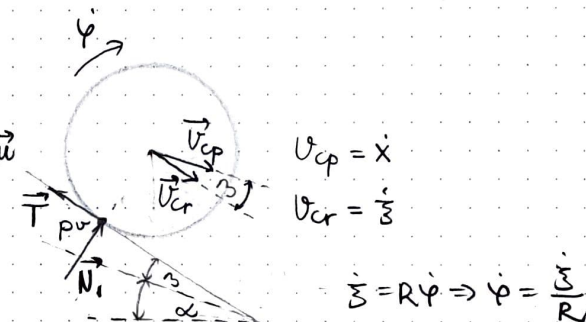 φ̇
u⃗
V⃗cp
V⃗cr
β
T⃗
pv
N⃗₁
β
α
Vcp = ẋ
Vcr = ξ̇
ξ̇ = Rφ̇ ⇒ φ̇ = ξ̇/R